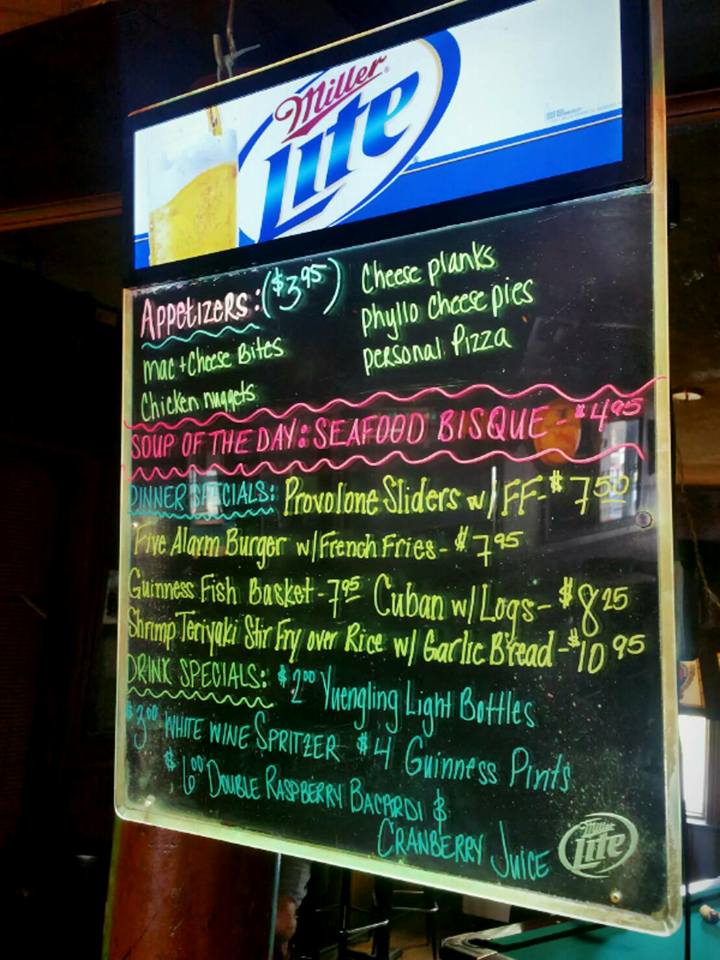 Miller
Lite
Appetizers: ($3.95)
Mac + Cheese Bites
Chicken nuggets
Cheese planks
Phyllo Cheese pies
personal Pizza
SOUP OF THE DAY: SEAFOOD BISQUE - $4.95
DINNER SPECIALS: Provolone Sliders w/ FF- $7.50
Five Alarm Burger w/French Fries - $7.95
Guinness Fish Basket - 7.95 Cuban w/Logs - $8.25
Shrimp Teriyaki Stir Fry over Rice w/ Garlic Bread - $10.95
DRINK SPECIALS: $2.00 Yuengling Light Bottles
$3.00 WHITE WINE SPRITZER $4 Guinness Pints
$6.00 DOUBLE RASPBERRY BACARDI &
CRANBERRY JUICE
Miller
Lite